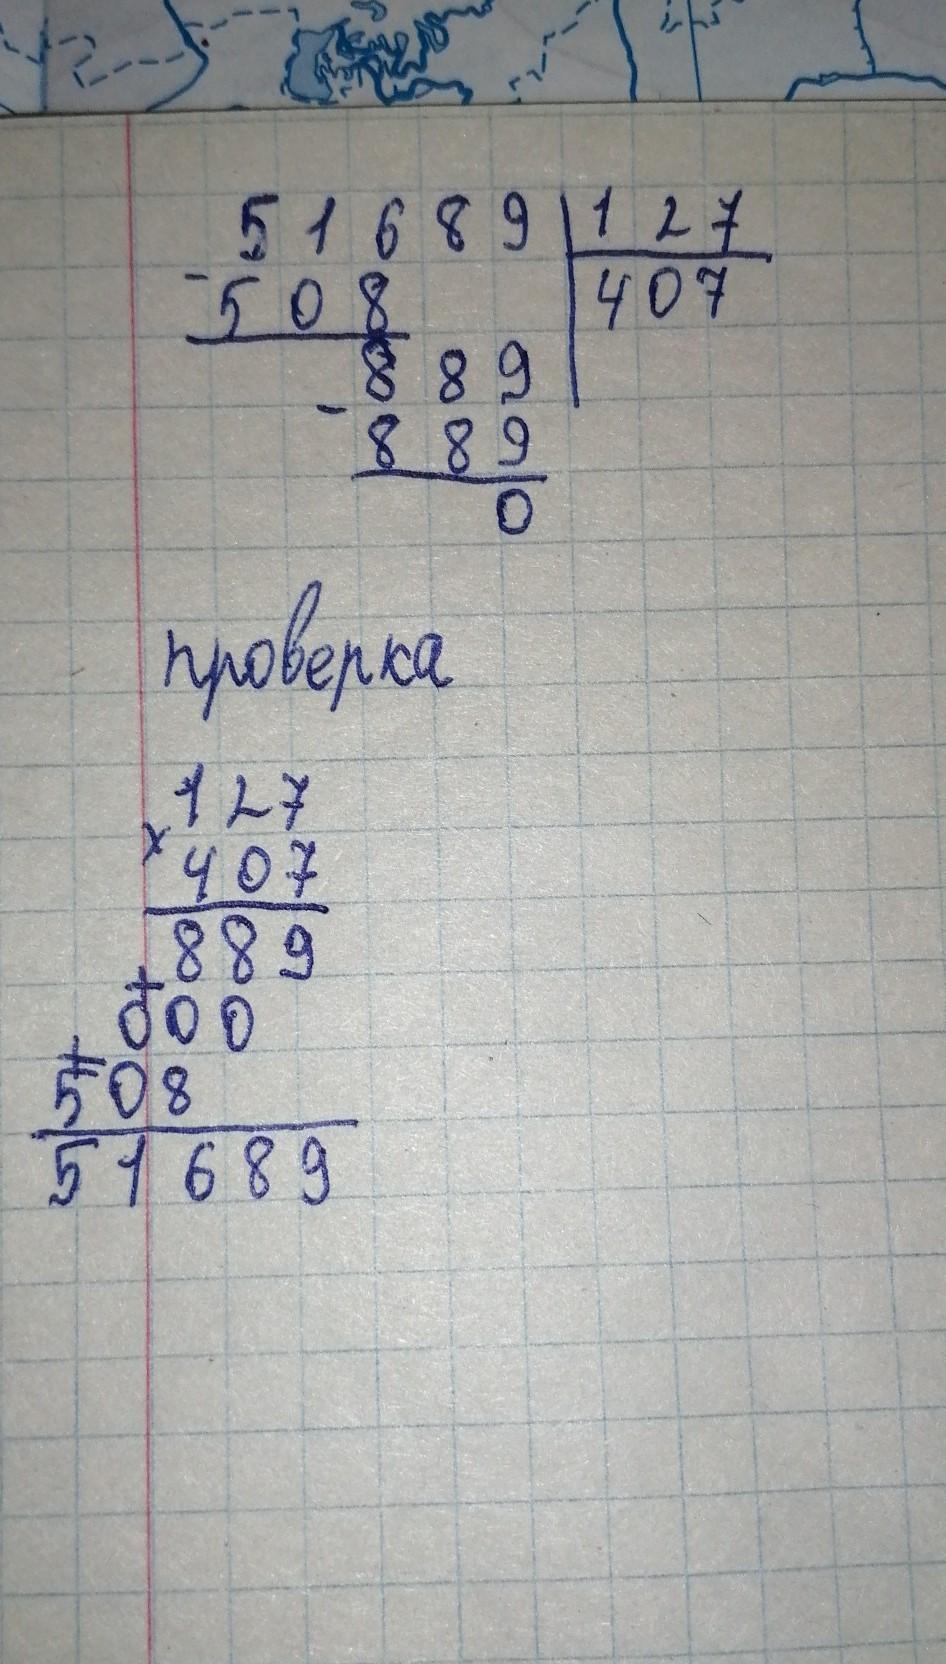 51689 | 127
- 508 | 407
889
- 889
0
проверка
127
× 407
889
+ 000
+ 508
51689